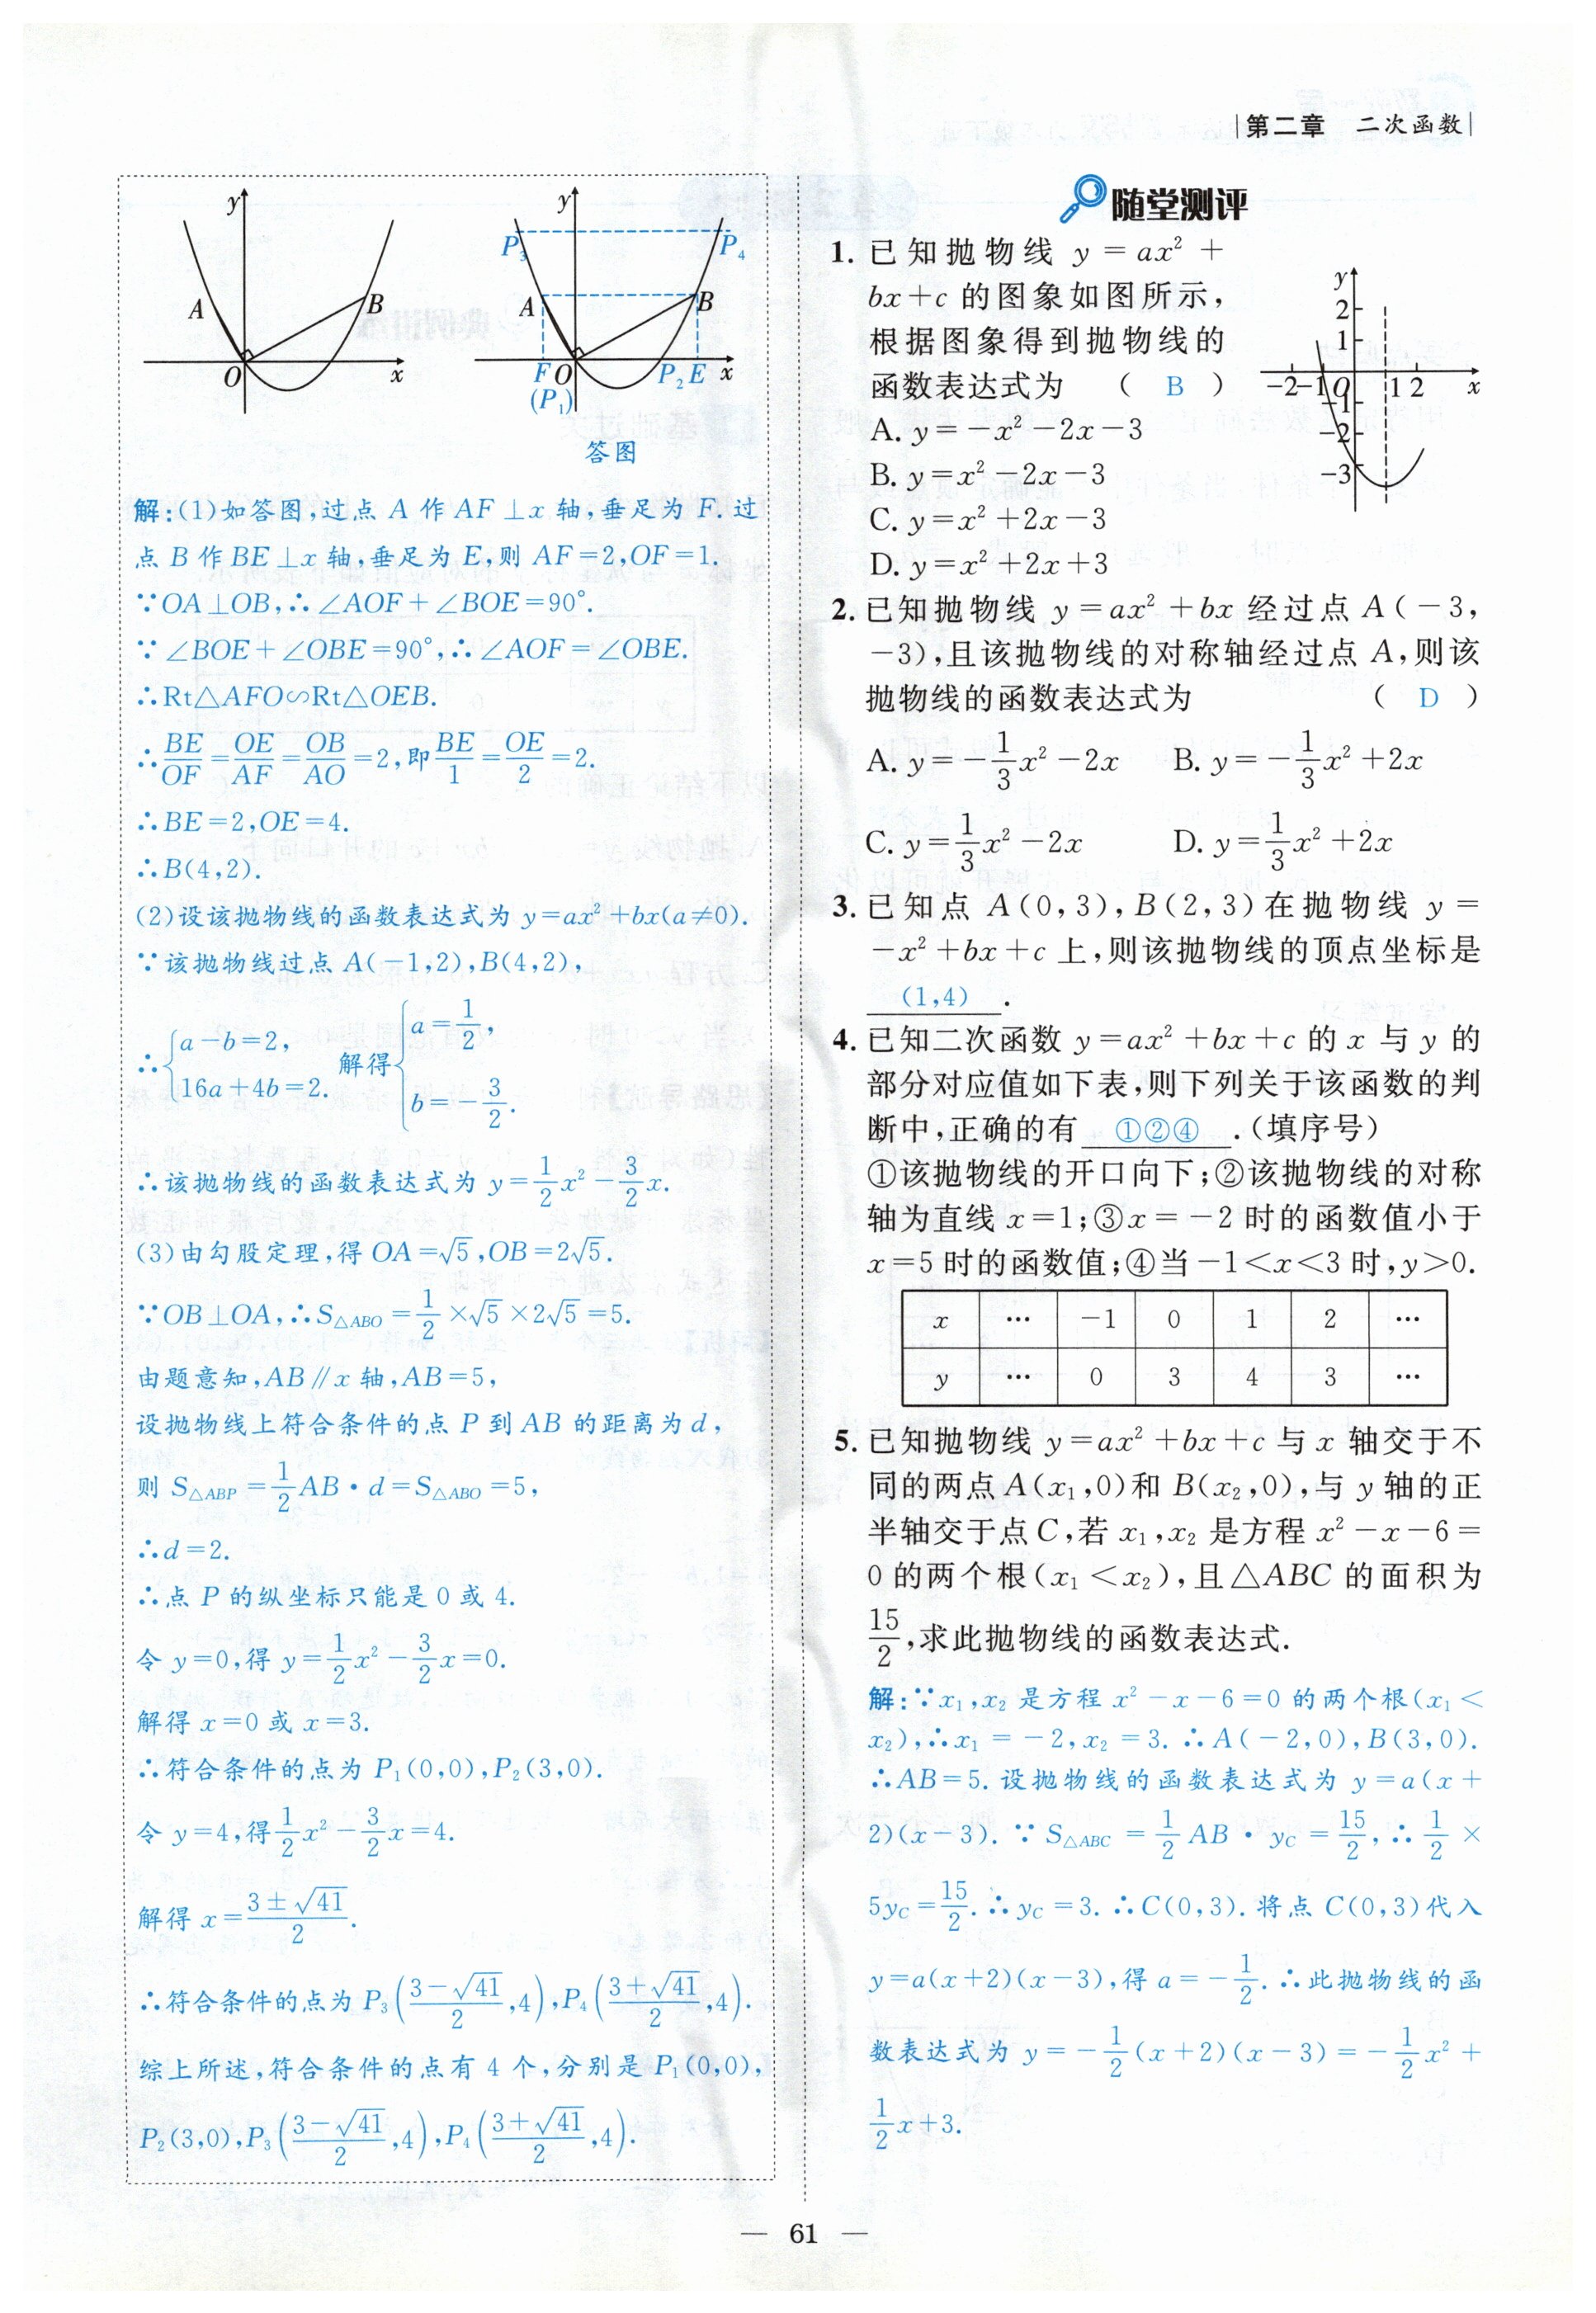 第二章 二次函数
y
A
B
O
x
y
P₃
P₄
A
B
F O
P₂ E x
(P₁)
答图
解:(1)如答图,过点 A 作 AF⊥x 轴,垂足为 F.过
点 B 作 BE⊥x 轴,垂足为 E,则 AF=2,OF=1.
∵OA⊥OB,∴∠AOF+∠BOE=90°.
∵∠BOE+∠OBE=90°,∴∠AOF=∠OBE.
∴Rt△AFO∽Rt△OEB.
∴BE/OF=OE/AF=OB/AO=2,即BE/1=OE/2=2.
∴BE=2,OE=4.
∴B(4,2).
(2)设该抛物线的函数表达式为 y=ax²+bx(a≠0).
∵该抛物线过点 A(-1,2),B(4,2),
∴{a-b=2, 16a+4b=2. 解得{a=1/2, b=-3/2.
∴该抛物线的函数表达式为 y=1/2x²-3/2x.
(3)由勾股定理,得 OA=√5,OB=2√5.
∵OB⊥OA,∴S△ABO=1/2×√5×2√5=5.
由题意知,AB∥x 轴,AB=5,
设抛物线上符合条件的点 P 到 AB 的距离为 d,
则 S△ABP=1/2AB·d=S△ABO=5,
∴d=2.
∴点 P 的纵坐标只能是 0 或 4.
令 y=0,得 y=1/2x²-3/2x=0.
解得 x=0 或 x=3.
∴符合条件的点为 P₁(0,0),P₂(3,0).
令 y=4,得1/2x²-3/2x=4.
解得 x=(3±√41)/2.
∴符合条件的点为 P₃((3-√41)/2,4),P₄((3+√41)/2,4).
综上所述,符合条件的点有 4 个,分别是 P₁(0,0),
P₂(3,0),P₃((3-√41)/2,4),P₄((3+√41)/2,4).
随堂测评
1. 已知抛物线 y=ax²+
bx+c 的图象如图所示,
根据图象得到抛物线的
函数表达式为 ( B )
A. y=-x²-2x-3
B. y=x²-2x-3
C. y=x²+2x-3
D. y=x²+2x+3
y
2
1
-2 -1 O 1 2 x
-1
-2
-3
2. 已知抛物线 y=ax²+bx 经过点 A(-3,
-3),且该抛物线的对称轴经过点 A,则该
抛物线的函数表达式为 ( D )
A. y=-1/3x²-2x B. y=-1/3x²+2x
C. y=1/3x²-2x D. y=1/3x²+2x
3. 已知点 A(0,3),B(2,3)在抛物线 y=
-x²+bx+c 上,则该抛物线的顶点坐标是
(1,4) .
4. 已知二次函数 y=ax²+bx+c 的 x 与 y 的
部分对应值如下表,则下列关于该函数的判
断中,正确的有 ①②④ .(填序号)
①该抛物线的开口向下;②该抛物线的对称
轴为直线 x=1;③x=-2 时的函数值小于
x=5 时的函数值;④当-1<x<3 时,y>0.
x … -1 0 1 2 …
y … 0 3 4 3 …
5. 已知抛物线 y=ax²+bx+c 与 x 轴交于不
同的两点 A(x₁,0)和 B(x₂,0),与 y 轴的正
半轴交于点 C,若 x₁,x₂ 是方程 x²-x-6=
0 的两个根(x₁<x₂),且△ABC 的面积为
15/2,求此抛物线的函数表达式.
解:∵x₁,x₂ 是方程 x²-x-6=0 的两个根(x₁<
x₂),∴x₁=-2,x₂=3.∴A(-2,0),B(3,0).
∴AB=5.设抛物线的函数表达式为 y=a(x+
2)(x-3).∵S△ABC=1/2AB·y_C=15/2,∴1/2×
5y_C=15/2.∴y_C=3.∴C(0,3).将点 C(0,3)代入
y=a(x+2)(x-3),得 a=-1/2.∴此抛物线的函
数表达式为 y=-1/2(x+2)(x-3)=-1/2x²+
1/2x+3.
— 61 —